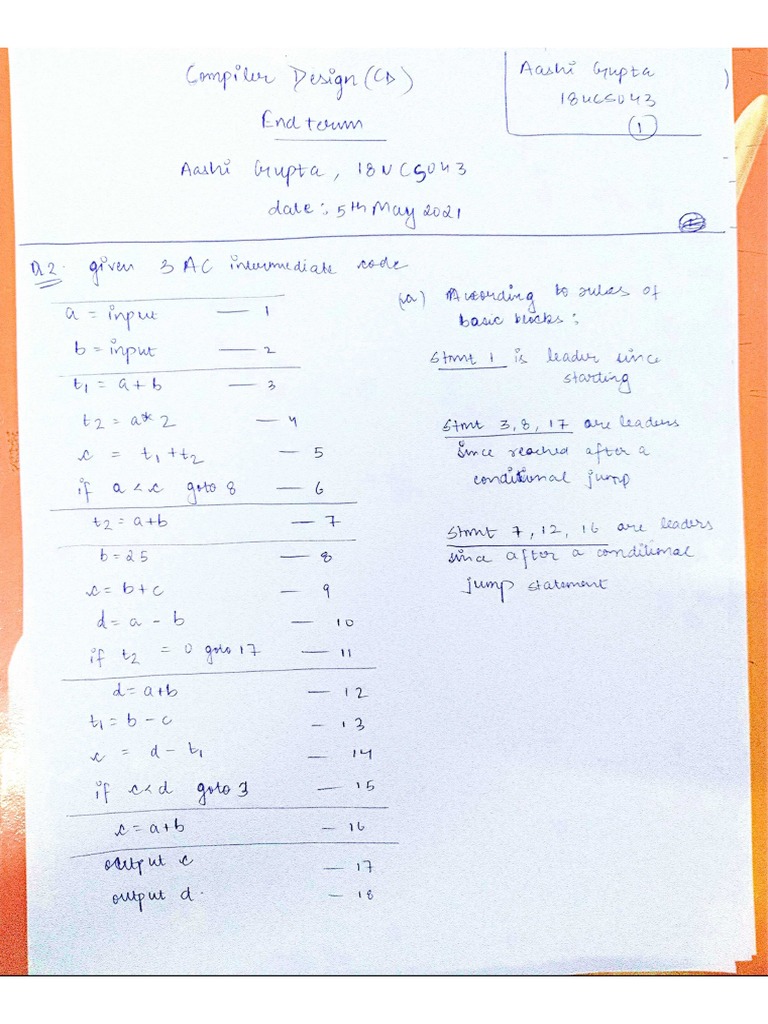 Compiler Design (CD)
End term
Aashi Gupta, 18UCS043
date: 5th May 2021
Aashi Gupta
18UCS043
1
Q.2. given 3 AC intermediate code
a = input — 1
b = input — 2
t1 = a + b — 3
t2 = a * 2 — 4
c = t1 + t2 — 5
if a < c goto 8 — 6
t2 = a+b — 7
b = 25 — 8
c = b + c — 9
d = a - b — 10
if t2 = 0 goto 17 — 11
d = a+b — 12
t1 = b - c — 13
c = d - t1 — 14
if c < d goto 3 — 15
c = a+b — 16
output c — 17
output d. — 18
(a) According to rules of
basic blocks:
Stmt 1 is leader since
starting
Stmt 3, 8, 17 are leaders
since reached after a
conditional jump
Stmt 7, 12, 16 are leaders
since after a conditional
jump statement